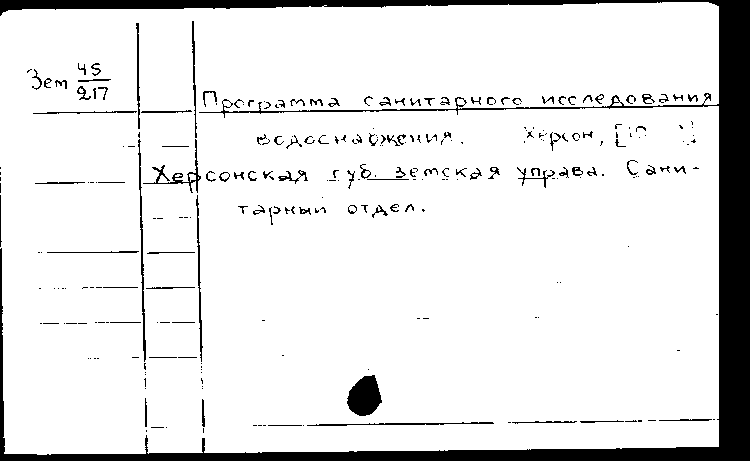 Зем 45/217
Программа санитарного исследования
водоснабжения. Херсон,
Херсонская губ. земская управа. Сани-
тарный отдел.